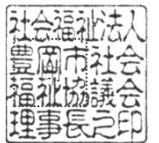 社会福祉法人
豊岡市社会
福祉協議会
理事長之印